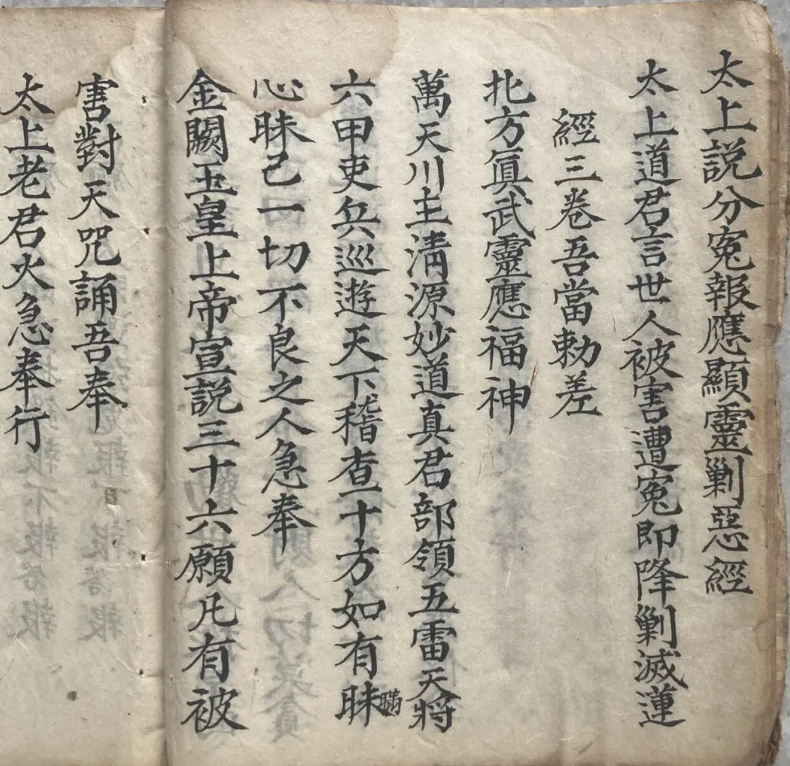 太上説分寃報應顯靈剿惡經
太上道君言世人被害遭寃即降剿滅蓮
經三卷吾當勅差
北方眞武靈應福神
萬天川主清源妙道真君部領五雷天將
六甲吏兵巡遊天下稽查十方如有昧瞞
心昧己一切不良之人急奉
金闕玉皇上帝宣説三十六願凡有被
害對天咒誦吾奉
太上老君火急奉行